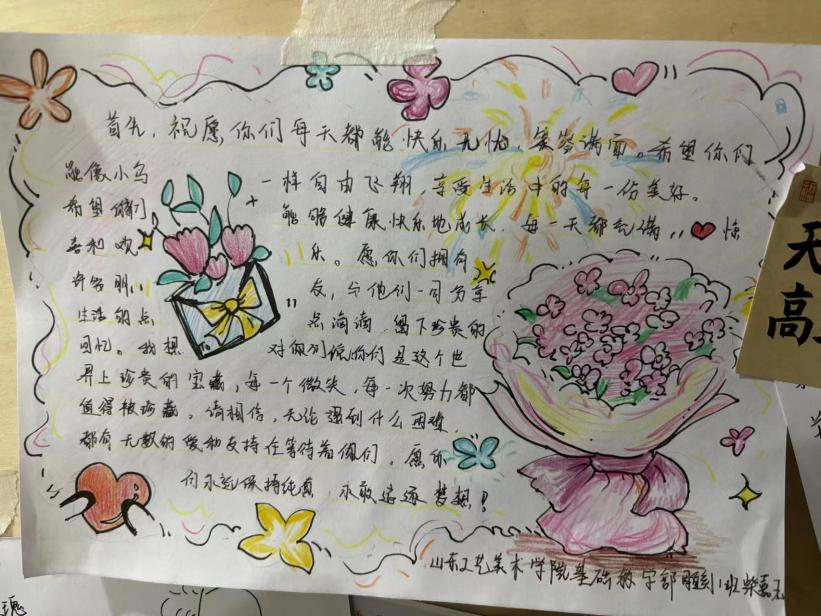 首先，祝愿你们每天都能快乐无忧，笑容满面。希望你们
能像小鸟一样自由飞翔，享受生活中的每一份美好。
希望你们能够健康快乐地成长，每一天都充满惊
喜和欢乐。愿你们拥有
许多朋友，与他们一同分享
生活的点点滴滴，留下珍贵的
回忆。我想对你们说你们是这个世
界上珍贵的宝藏，每一个微笑，每一次努力都
值得被珍藏。请相信，无论遇到什么困难，
都有无数的爱和支持在等待着你们，愿你
们永远保持纯真，永敢追逐梦想！
山东工艺美术学院基础教学部雕刻1班柴
天
高